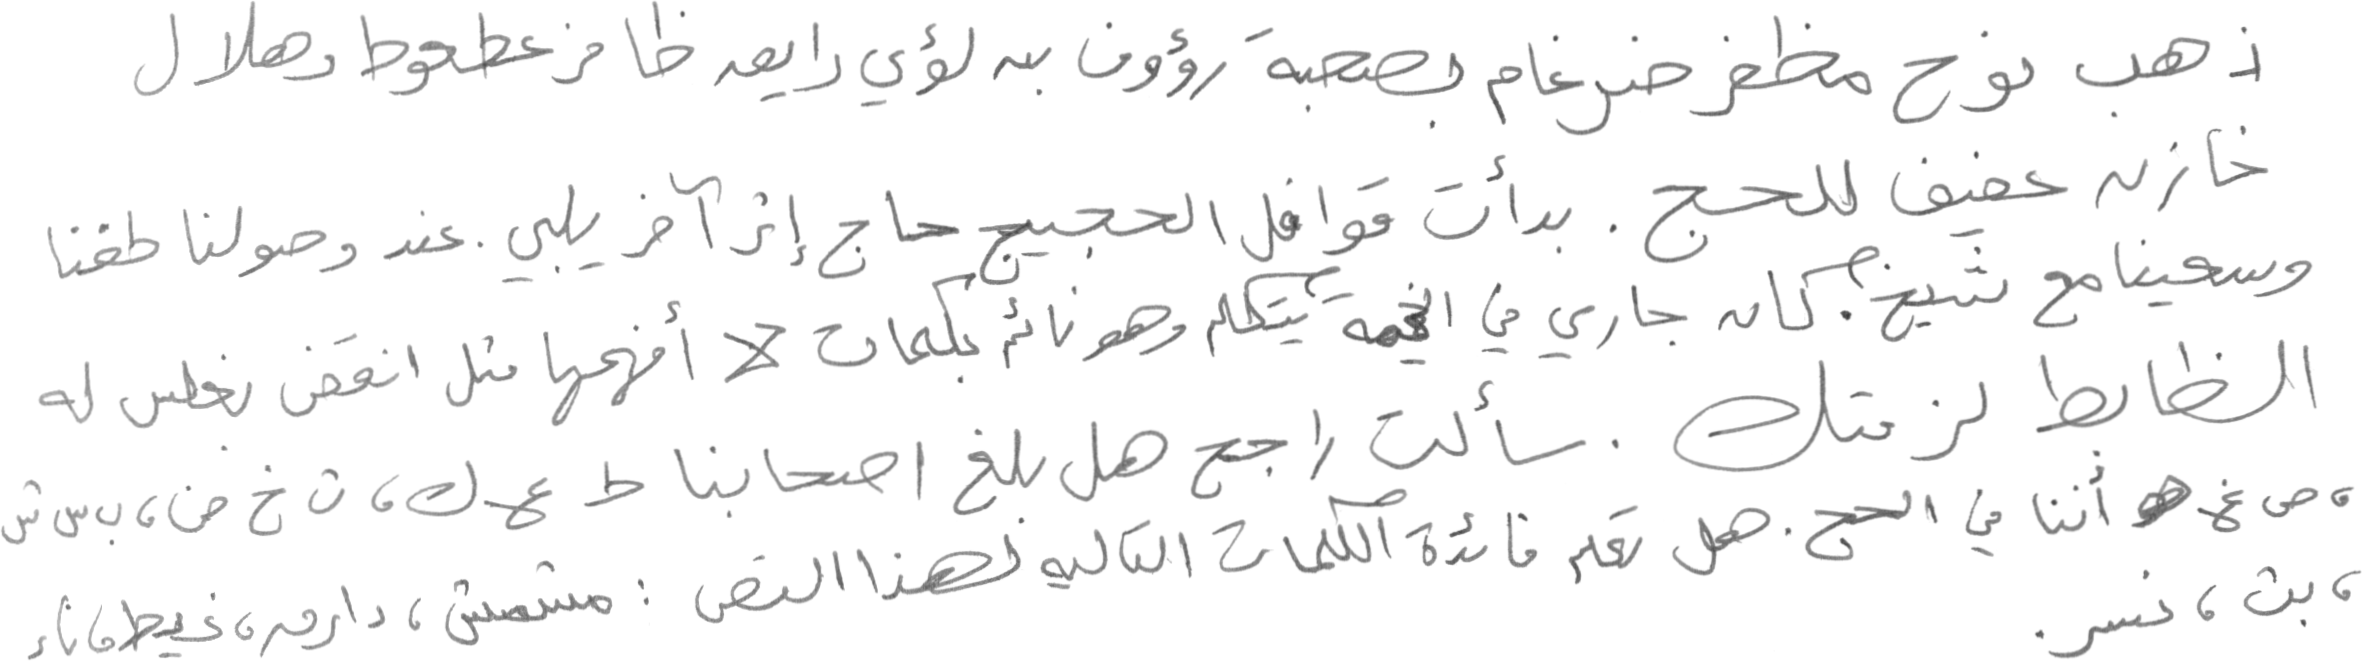 ذهب نوح مظفر ضرغام بصحبة رؤوف بن لؤي رايق ظافر عطعوط وهلال
خازن عفيف للحج. بدأت قوافل الحجيج حاج إثر آخر يلبي. عند وصولنا طفنا
وسعينا مع شيخ. كان جاري في الخيمة يتكلم وهو نائم بكلمات لا أفهمها مثل انقض يغلس له
الظابط لزمتك. سألت راجح هل بلغ اصحابنا ط ع ك، ث خ ض، ب س ش
، ص غ ه أننا في الحج. هل تعلم فائدة الكلمات التاليه لهذا النص: مشمش، دارون، غيط، ناء
، بث، نسر.